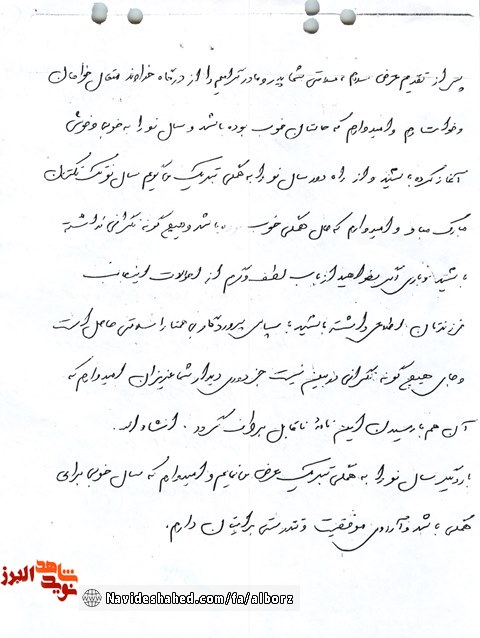 پس از تقدیم عرض سلام، سلامتی شما پدر و مادر گرامیم را از درگاه خداوند متعال خواهان
و خواستارم و امیدوارم که حالتان خوب بوده باشد و سال نو را به خوبی و خوشی
آغاز کرده باشید و از راه دور سال نو را به همگی تبریک می گویم سال نو
مبارک باد و امیدوارم که حال همگی خوب باشد و هیچ گونه نگرانی نداشته
باشید. باری اگر بخواهید از باب لطف و کرم از احوالات اینجانب
فرزندتان اطلاعی داشته باشید با سپاس پروردگار بی همتا سلامتی حاصل است
و جای هیچ گونه نگرانی در بین نیست جز دوری دیدار شما عزیزان امیدوارم که
آن هم با رسیدن این نامه ناقابل جبران گردد. انشاءاله.
بار دیگر سال نو را به همگی تبریک عرض می نمایم و امیدوارم که سال خوبی برای
همگی باشد و آرزوی موفقیت و تندرستی برایتان دارم.
نوید شاهد البرز
Navideshahed.com/fa/alborz